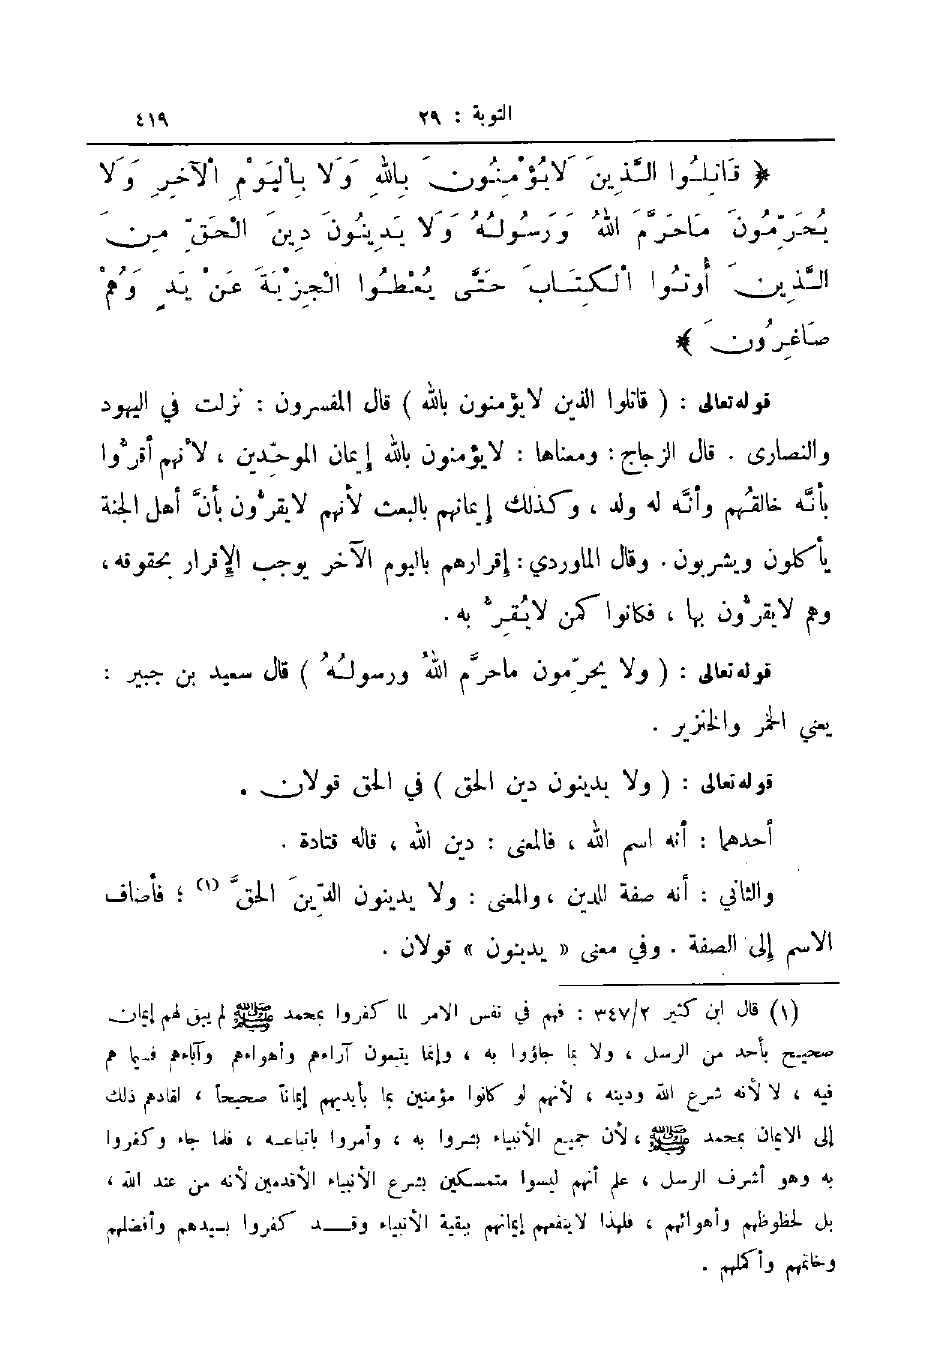 التوبة : ٢٩ ٤١٩
﴿ قَاتِلُوا الَّذِينَ لَا يُؤْمِنُونَ بِاللهِ وَلَا بِالْيَوْمِ الْآخِرِ وَلَا
يُحَرِّمُونَ مَا حَرَّمَ اللهُ وَرَسُولُهُ وَلَا يَدِينُونَ دِينَ الْحَقِّ مِنَ
الَّذِينَ أُوتُوا الْكِتَابَ حَتَّى يُعْطُوا الْجِزْيَةَ عَنْ يَدٍ وَهُمْ
صَاغِرُونَ ﴾
قوله تعالى : ( قاتلوا الذين لا يؤمنون بالله ) قال المفسرون : نزلت في اليهود
والنصارى . قال الزجاج : ومعناها : لا يؤمنون بالله إيمان الموحِّدين ، لأنهم أقرُّوا
بأنَّه خالقُهم وأنَّه له ولد ، وكذلك إيمانهم بالبعث لأنهم لا يقرُّون بأنَّ أهل الجنة
يأكلون ويشربون . وقال الماوردي : إقرارهم باليوم الآخر يوجب الإقرار بحقوقه ،
وهم لا يقرُّون بها ، فكانوا كمن لا يُقِرُّ به .
قوله تعالى : ( ولا يحرِّمون ما حرَّم اللهُ ورسولُهُ ) قال سعيد بن جبير :
يعني الخمر والخنزير .
قوله تعالى : ( ولا يدينون دين الحق ) في الحق قولان .
أحدهما : أنه اسم الله ، فالمعنى : دين الله ، قاله قتادة .
والثاني : أنه صفة للدين ، والمعنى : ولا يدينون الدِّينَ الحقَّ (١) ؛ فأضاف
الاسم إلى الصفة . وفي معنى « يدينون » قولان .
(١) قال ابن كثير ٣٤٧/٢ : فهم في نفس الامر لما كفروا بمحمد ﷺ لم يبق لهم إيمان
صحيح بأحد من الرسل ، ولا بما جاؤوا به ، وإنما يتبعون آراءهم وأهواءهم وآباءهم فيما هم
فيه ، لا لأنه شرع الله ودينه ، لأنهم لو كانوا مؤمنين بما بأيديهم إيماناً صحيحاً ، لقادهم ذلك
إلى الايمان بمحمد ﷺ ، لأن جميع الأنبياء بشروا به ، وأمروا باتباعه ، فلما جاء وكفروا
به وهو أشرف الرسل ، علم أنهم ليسوا متمسكين بشرع الأنبياء الأقدمين لأنه من عند الله ،
بل لحظوظهم وأهوائهم ، فلهذا لا ينفعهم إيمانهم ببقية الأنبياء وقد كفروا بسيدهم وأفضلهم
وخاتمهم وأكملهم .